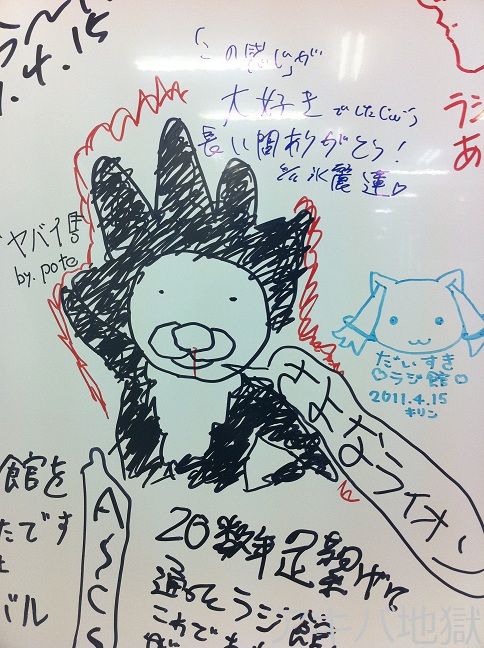 .4.15
「この感じ」が
大好きでした(;ω;)
長い間ありがとう!
氷麗連
ラジ
あ
ヤバイ
by.pote
だいすき
ラジ館
2011.4.15
キリン
さよなライオン
館を
たです
バル
ASCS
20数年足繁げく
通ってラジ館
これで
アキバ地獄